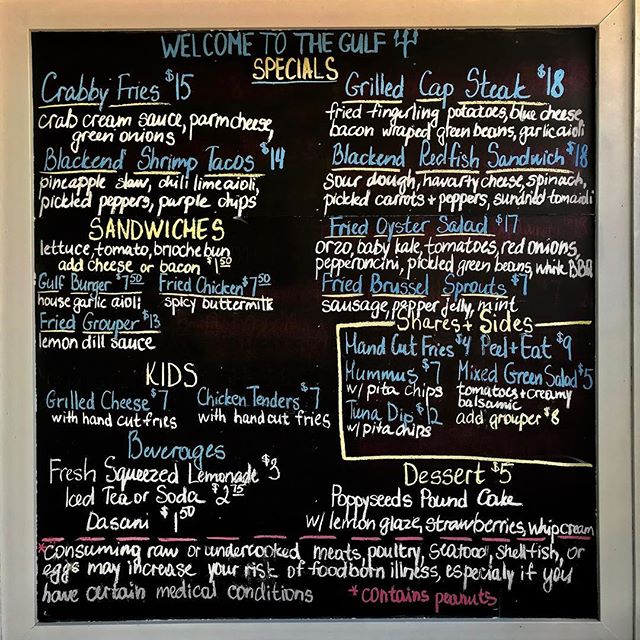 WELCOME TO THE GULF
SPECIALS
Crabby Fries $15
crab cream sauce, parm cheese,
green onions
Blackend Shrimp Tacos $14
pineapple slaw, chili lime aioli,
pickled peppers, purple chips
SANDWICHES
lettuce, tomato, brioche bun
add cheese or bacon $1.50
Gulf Burger $7.50 Fried Chicken $7.50
house garlic aioli spicy buttermilk
Fried Grouper $13
lemon dill sauce
KIDS
Grilled Cheese $7 Chicken Tenders $7
with hand cut fries with hand cut fries
Beverages
Fresh Squeezed Lemonade $3
Iced Tea or Soda $2.75
Dasani $1.50
Grilled Cap Steak $18
fried fingurling potatoes, blue cheese,
bacon wraped green beans, garlic aioli
Blackend Redfish Sandwich $18
sour dough, havarty cheese, spinach,
pickled carrots + peppers, sundried tom aioli
Fried Oyster Salad $17
orzo, baby kale, tomatoes, red onions,
pepperoncini, pickled green beans, white BBQ
Fried Brussel Sprouts $7
sausage, pepper jelly, mint
Shares + Sides
Hand Cut Fries $4 Peel + Eat $9
Hummus $7 Mixed Green Salad $5
w/ pita chips tomatoes + creamy
balsamic
Tuna Dip $12 add grouper $8
w/ pita chips
Dessert $5
Poppyseeds Pound Cake
w/ lemon glaze, strawberries, whip cream
*consuming raw or undercooked meats, poultry, seafood, shellfish, or
eggs may increase your risk of foodborn illness, especialy if you
have certain medical conditions *contains peanuts